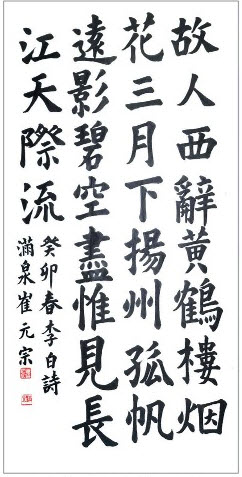 故人西辭黃鶴樓烟
花三月下揚州孤帆
遠影碧空盡惟見長
江天際流
癸卯春李白詩
滿泉崔元宗